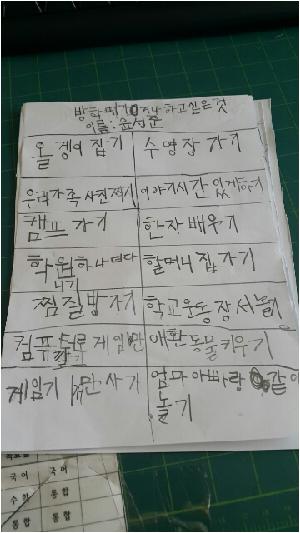 방학때 10가지 하고싶은것
이름: 윤성준
올챙이 잡기 수영장 가기
우리가족사진찍기 이야기시간 있게하기
캠프 가기 한자 배우기
학원하나더다 할머니집 가기
니기
찜질방가기 학교운동장서놀기
컴퓨터로 게임만 애완동물키우기
들기
게임기 만사기 엄마 아빠랑 같이
놀기
국어 국어
수학 통합
통합 통합